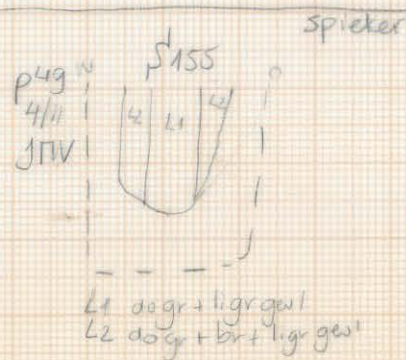 Spieker
S155
p49
4/11
JMV
N
O
L2
L1
L2
L1 dogr + ligr gevl
L2 dogr + br + ligr gevl